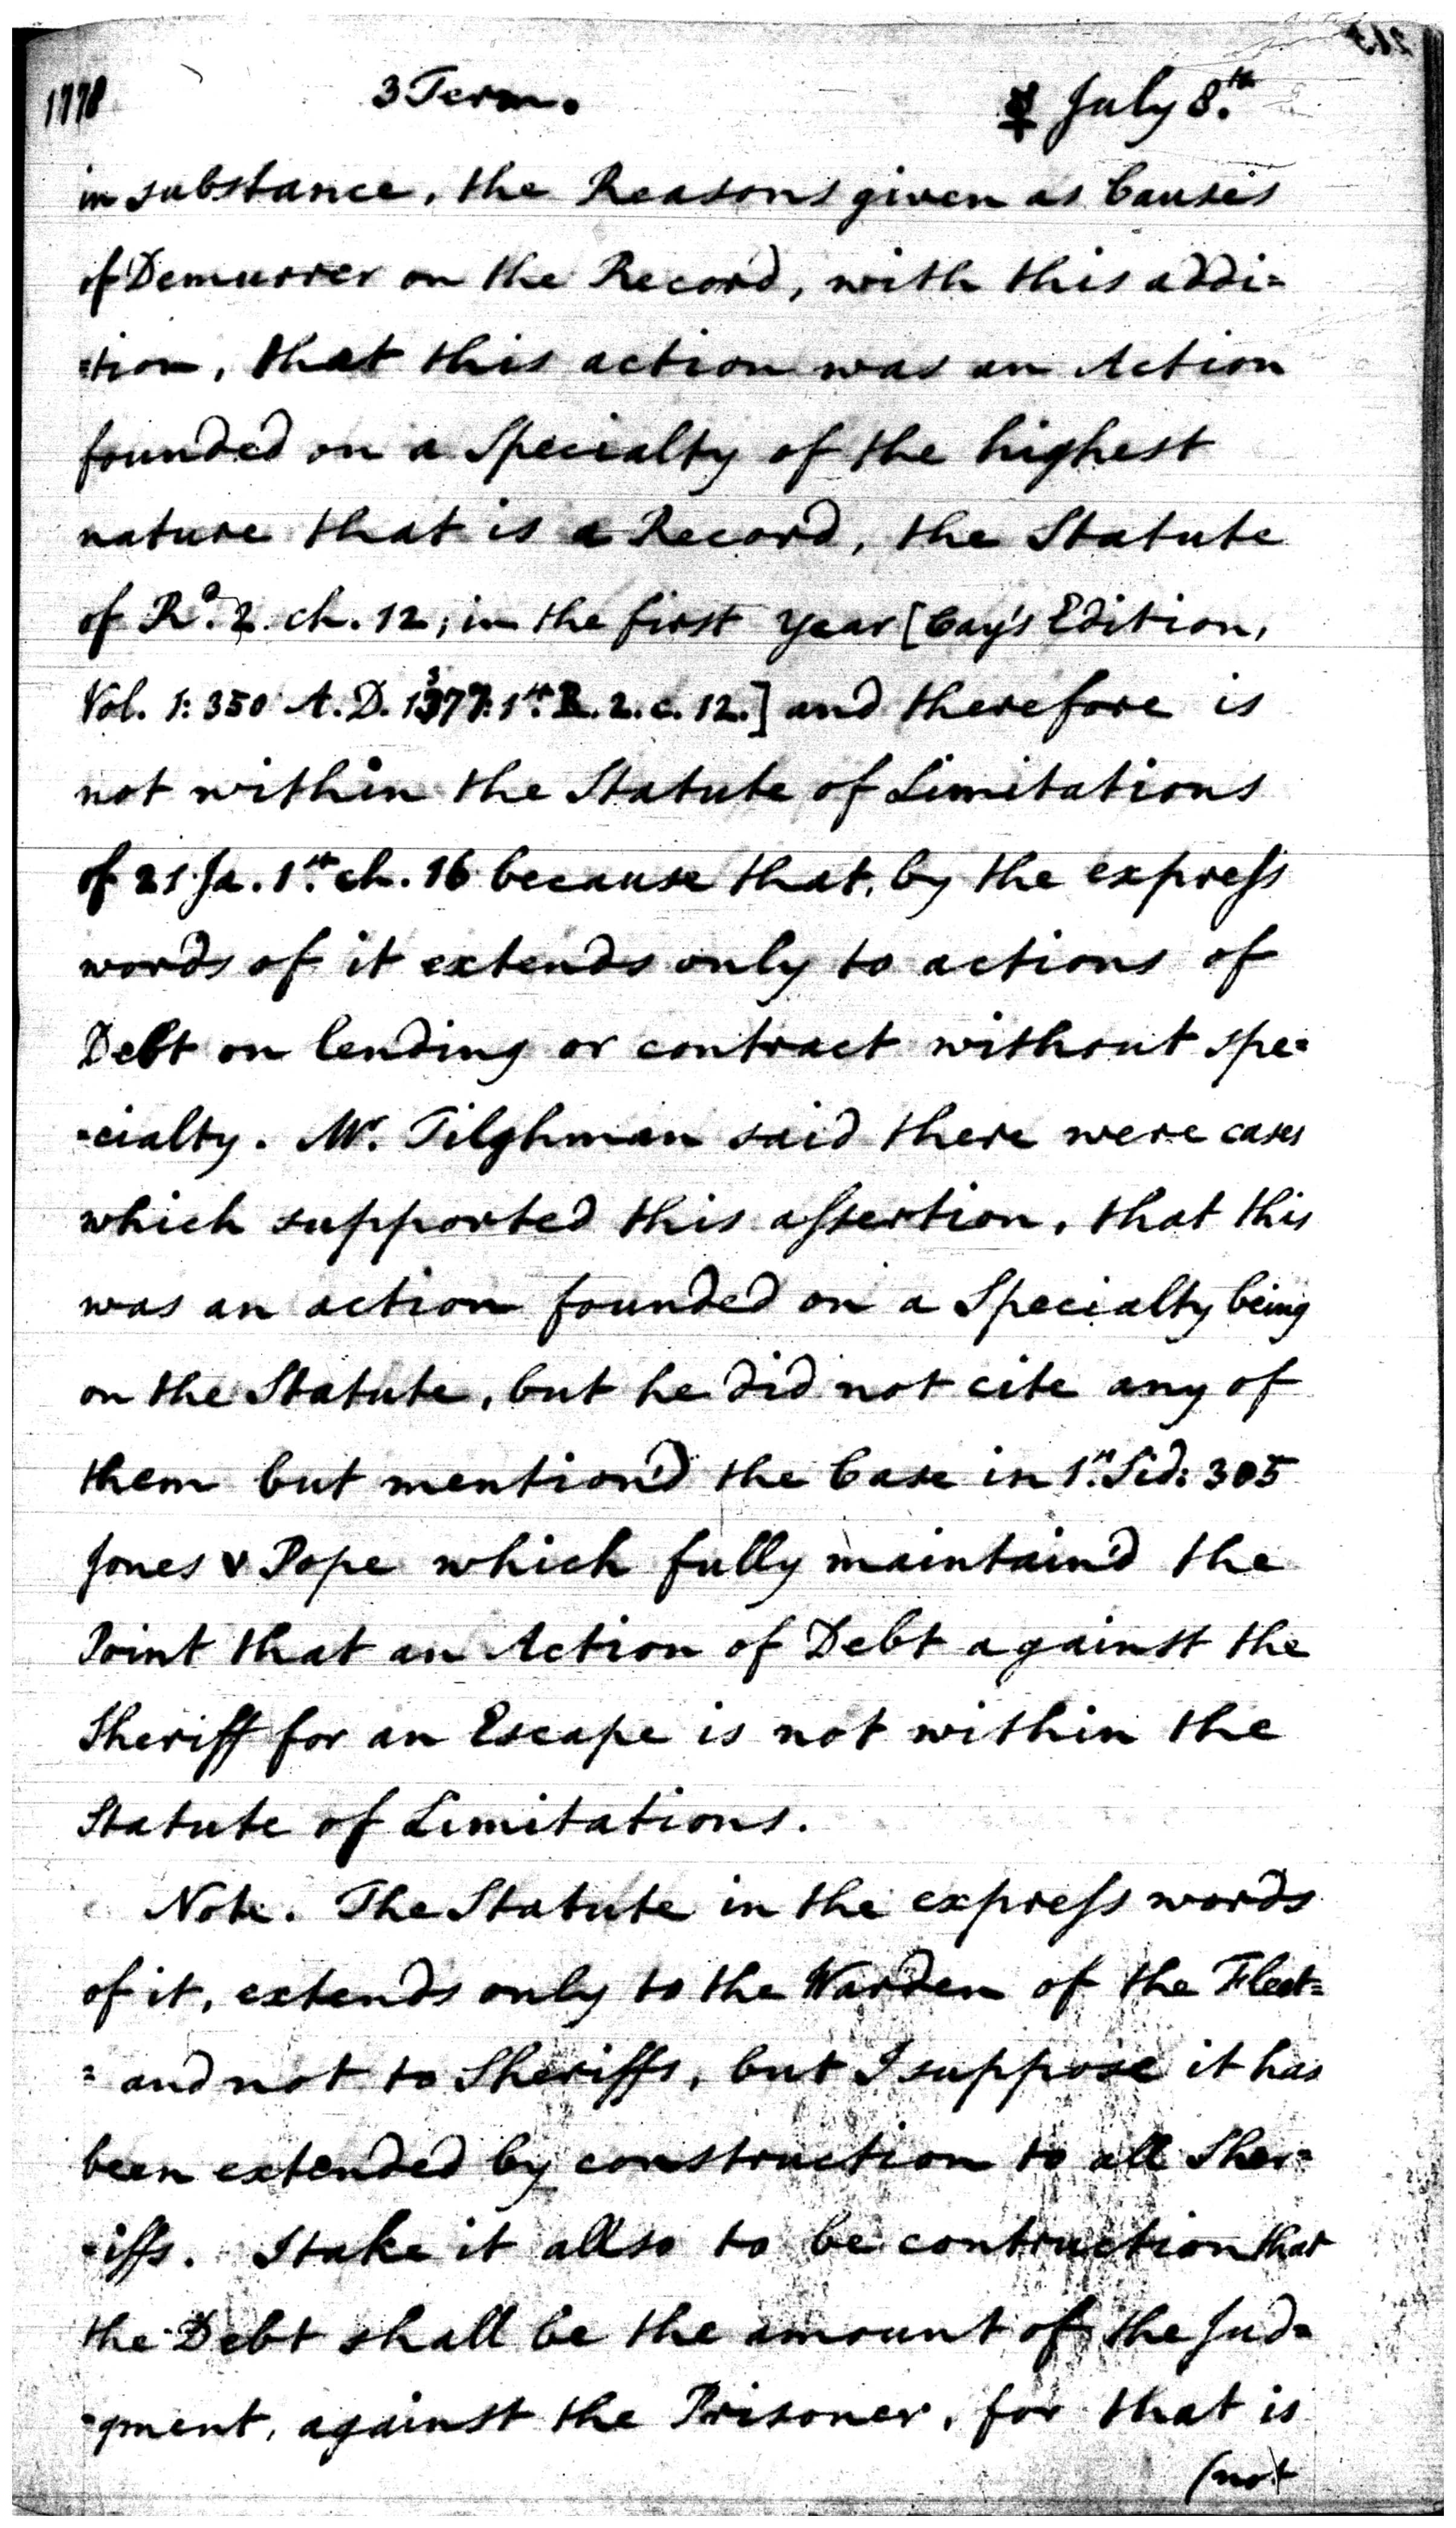 1778 3 Term. ☿ July 8.th
in substance, the Reasons given as Causes
of Demurrer on the Record, with this addi=
=tion, that this action was an Action
founded on a Specialty of the highest
nature that is a Record, the Statute
of R.d 2. ch. 12, in the first year [Cay's Edition,
Vol. 1: 350 A.D. 1377: 1st R. 2. c. 12.] and therefore is
not within the Statute of Limitations
of 21 Ja. 1.st ch. 16 because that, by the expreſs
words of it extends only to actions of
Debt on lending or contract without spe=
=cialty. Mr. Tilghman said there were cases
which supported this aſsertion, that this
was an action founded on a Specialty being
on the Statute, but he did not cite any of
them but mention'd the Case in 1.st Sid: 305
Jones v Pope which fully maintain'd the
Point that an Action of Debt against the
Sheriff for an Escape is not within the
Statute of Limitations.
Note. The Statute in the expreſs words
of it, extends only to the Warden of the Fleet=
= and not to Sheriffs, but I suppose it has
been extended by construction to all Sher=
=iffs. I take it allso to be contruction that
the Debt shall be the amount of the Jud=
=gment, against the Prisoner, for that is
(not